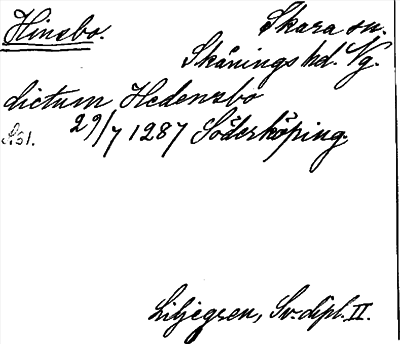 Hinsbo. Skara sn.
Skånings hd. Vg.
dictum Hedensbo
29/7 1287 Söderköping.
Liljegren, Sv. dipl. II.